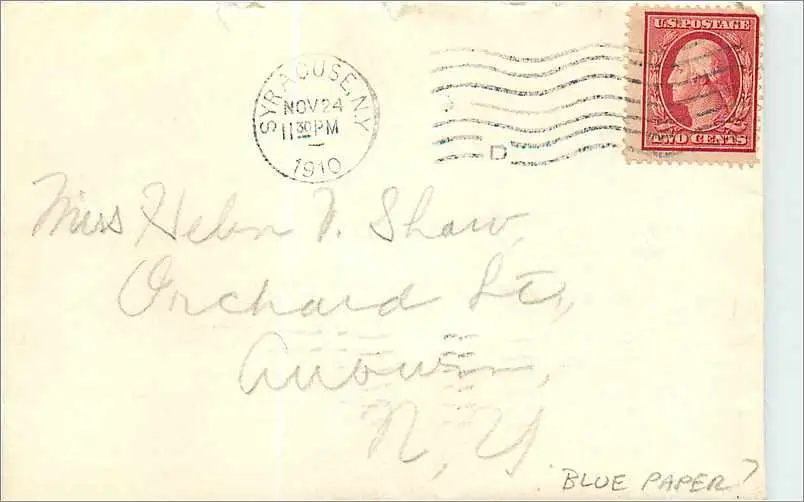 U.S. POSTAGE
TWO CENTS
SYRACUSE, N.Y.
NOV 24
11 30 PM
1910
D
Miss Helen V. Shaw,
Orchard St.,
Auburn,
N, Y
BLUE PAPER?